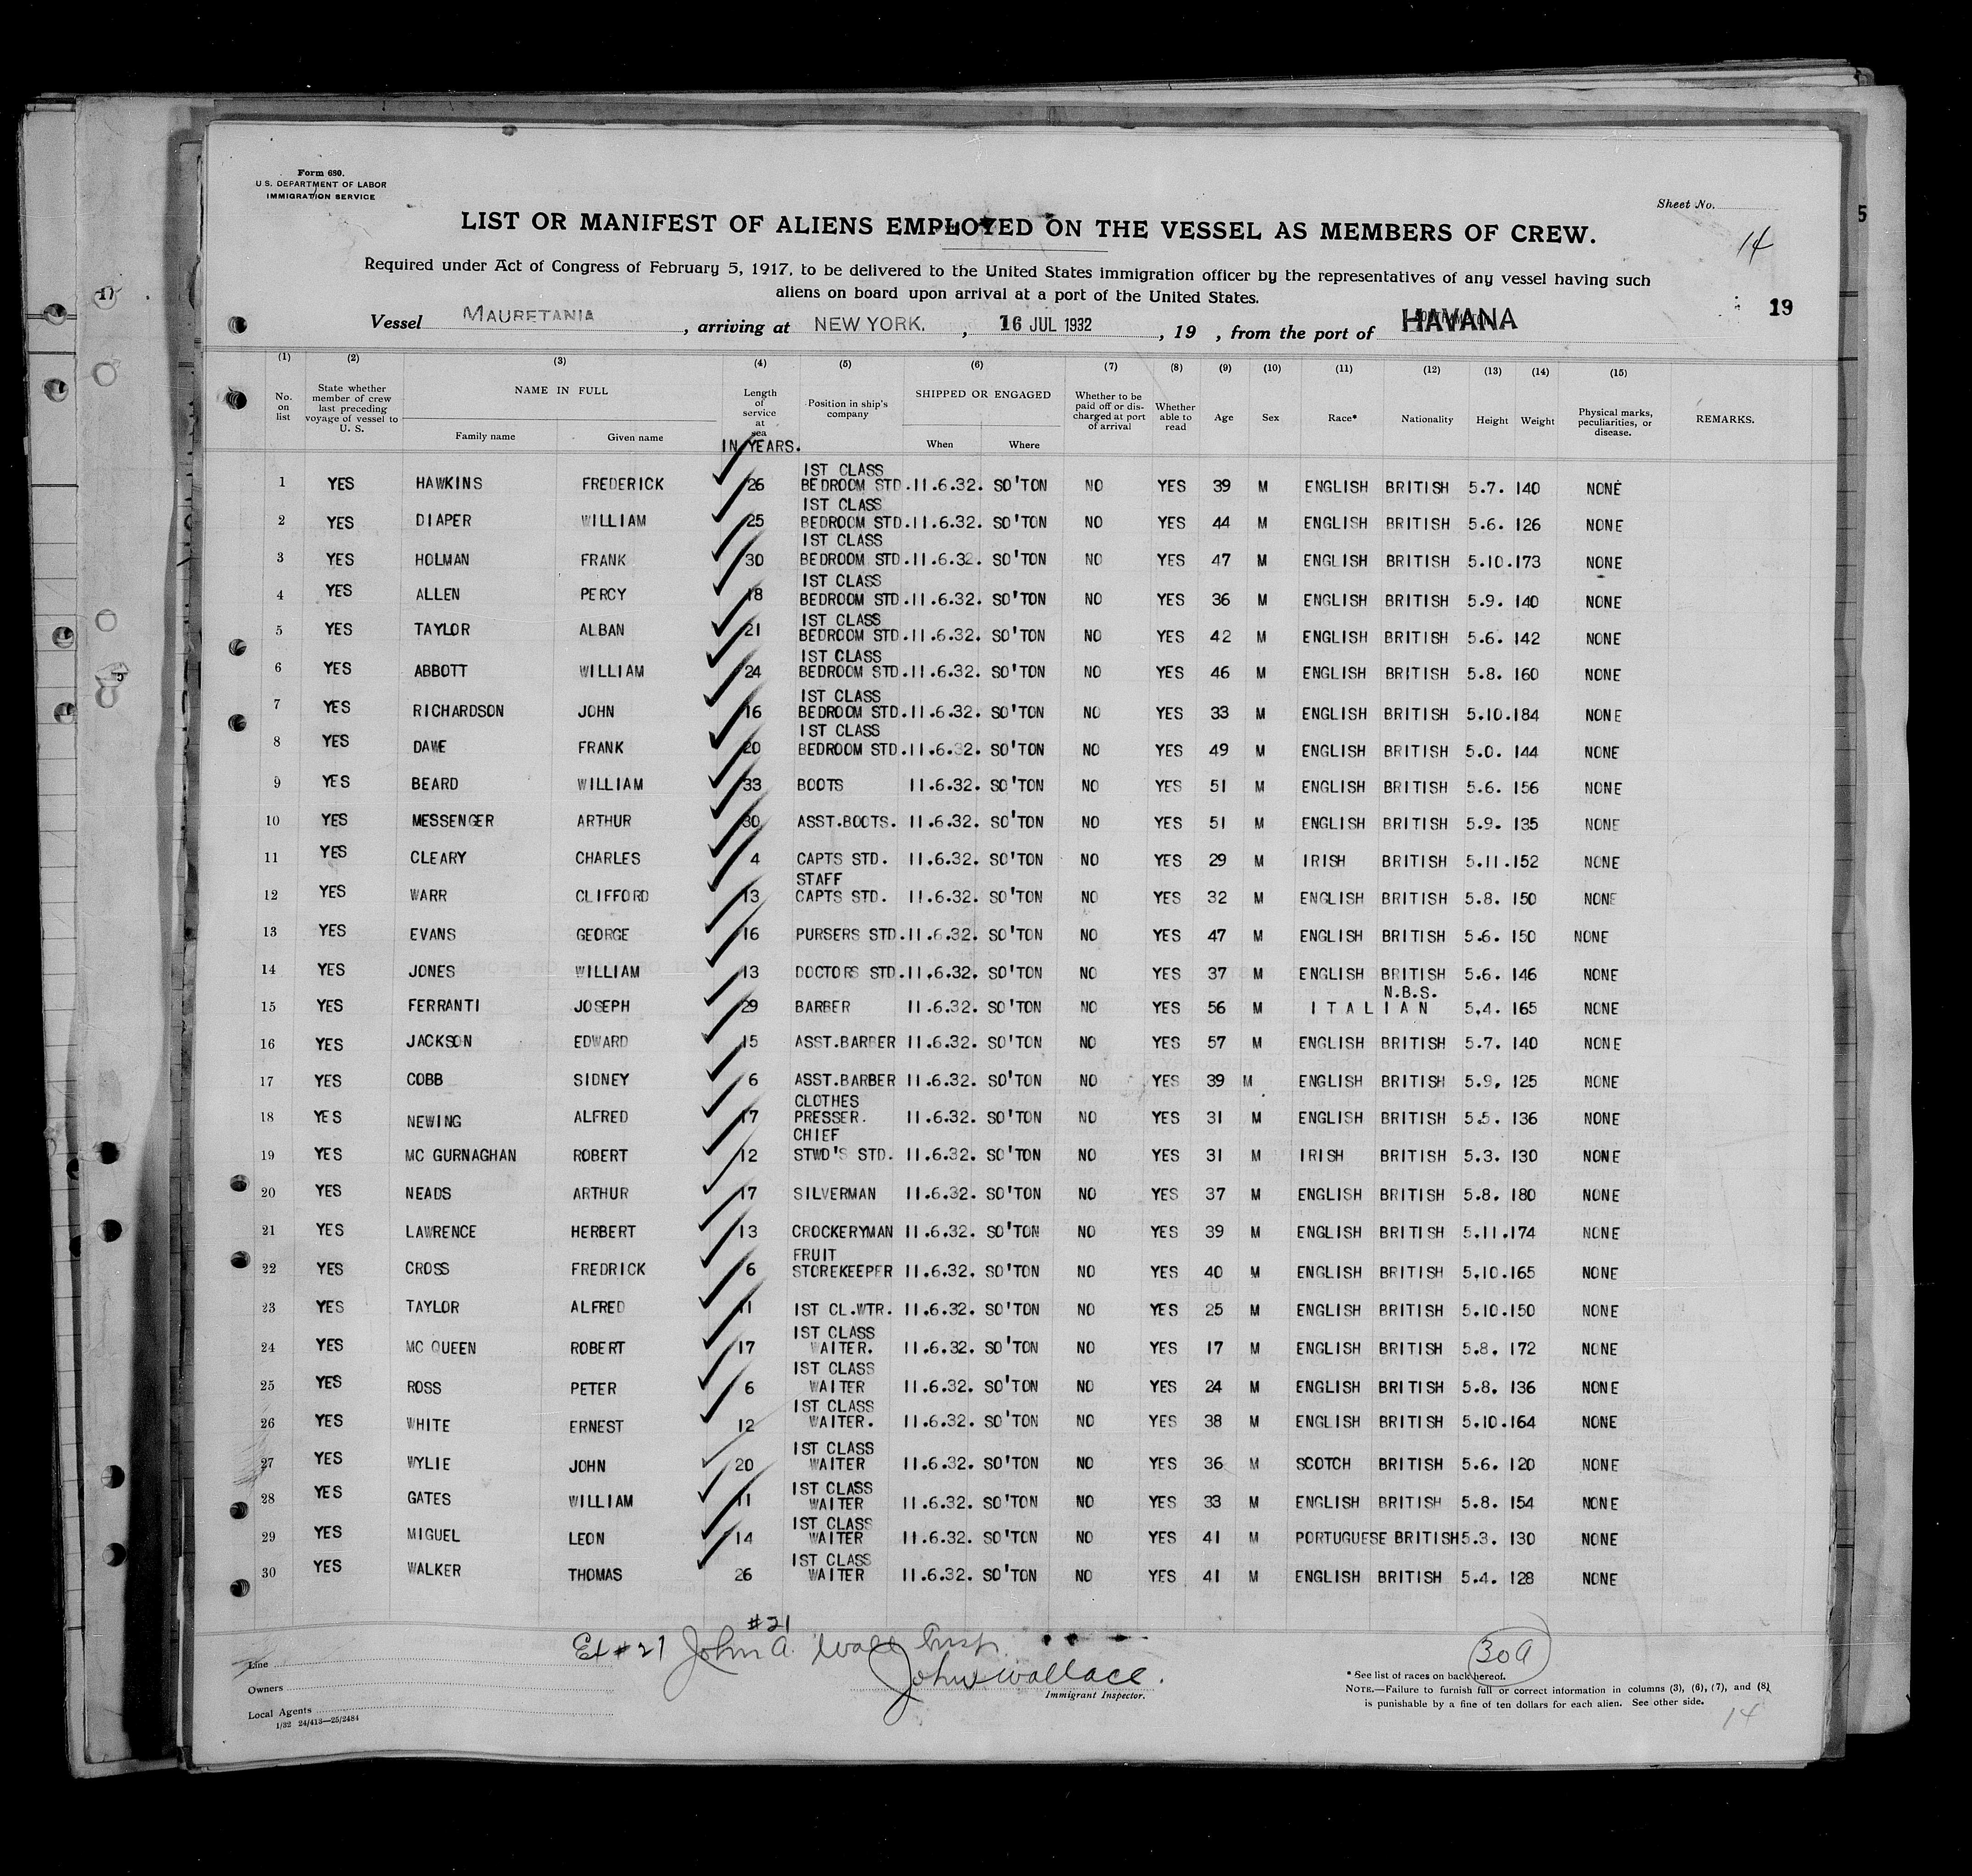 Form 680.
U.S. DEPARTMENT OF LABOR
IMMIGRATION SERVICE
Sheet No.
LIST OR MANIFEST OF ALIENS EMPLOYED ON THE VESSEL AS MEMBERS OF CREW.
14
Required under Act of Congress of February 5, 1917, to be delivered to the United States immigration officer by the representatives of any vessel having such
aliens on board upon arrival at a port of the United States.
19
Vessel MAURETANIA, arriving at NEW YORK., 16 JUL 1932, 19 , from the port of HAVANA
(1) (2) (3) (4) (5) (6) (7) (8) (9) (10) (11) (12) (13) (14) (15)
No. on list State whether member of crew last preceding voyage of vessel to U. S. NAME IN FULL Length of service at sea Position in ship's company SHIPPED OR ENGAGED Whether to be paid off or discharged at port of arrival Whether able to read Age Sex Race* Nationality Height Weight Physical marks, peculiarities, or disease. REMARKS.
Family name Given name IN YEARS. When Where
1 YES HAWKINS FREDERICK 26 1ST CLASS BEDROOM STD. 11.6.32. SO'TON NO YES 39 M ENGLISH BRITISH 5.7. 140 NONE
2 YES DIAPER WILLIAM 25 1ST CLASS BEDROOM STD. 11.6.32. SO'TON NO YES 44 M ENGLISH BRITISH 5.6. 126 NONE
3 YES HOLMAN FRANK 30 1ST CLASS BEDROOM STD. 11.6.32. SO'TON NO YES 47 M ENGLISH BRITISH 5.10. 173 NONE
4 YES ALLEN PERCY 18 1ST CLASS BEDROOM STD. 11.6.32. SO'TON NO YES 36 M ENGLISH BRITISH 5.9. 140 NONE
5 YES TAYLOR ALBAN 21 1ST CLASS BEDROOM STD. 11.6.32. SO'TON NO YES 42 M ENGLISH BRITISH 5.6. 142 NONE
6 YES ABBOTT WILLIAM 24 1ST CLASS BEDROOM STD. 11.6.32. SO'TON NO YES 46 M ENGLISH BRITISH 5.8. 160 NONE
7 YES RICHARDSON JOHN 16 1ST CLASS BEDROOM STD. 11.6.32. SO'TON NO YES 33 M ENGLISH BRITISH 5.10. 184 NONE
8 YES DAWE FRANK 20 1ST CLASS BEDROOM STD. 11.6.32. SO'TON NO YES 49 M ENGLISH BRITISH 5.0. 144 NONE
9 YES BEARD WILLIAM 33 BOOTS 11.6.32. SO'TON NO YES 51 M ENGLISH BRITISH 5.6. 156 NONE
10 YES MESSENGER ARTHUR 30 ASST.BOOTS. 11.6.32. SO'TON NO YES 51 M ENGLISH BRITISH 5.9. 135 NONE
11 YES CLEARY CHARLES 4 CAPTS STD. 11.6.32. SO'TON NO YES 29 M IRISH BRITISH 5.11. 152 NONE
12 YES WARR CLIFFORD 13 STAFF CAPTS STD. 11.6.32. SO'TON NO YES 32 M ENGLISH BRITISH 5.8. 150 NONE
13 YES EVANS GEORGE 16 PURSERS STD. 11.6.32. SO'TON NO YES 47 M ENGLISH BRITISH 5.6. 150 NONE
14 YES JONES WILLIAM 13 DOCTORS STD. 11.6.32. SO'TON NO YES 37 M ENGLISH BRITISH 5.6. 146 NONE
15 YES FERRANTI JOSEPH 29 BARBER 11.6.32. SO'TON NO YES 56 M N.B.S. ITALIAN 5.4. 165 NONE
16 YES JACKSON EDWARD 15 ASST.BARBER 11.6.32. SO'TON NO YES 57 M ENGLISH BRITISH 5.7. 140 NONE
17 YES COBB SIDNEY 6 ASST.BARBER 11.6.32. SO'TON NO YES 39 M ENGLISH BRITISH 5.9. 125 NONE
18 YES NEWING ALFRED 17 CLOTHES PRESSER. 11.6.32. SO'TON NO YES 31 M ENGLISH BRITISH 5.5. 136 NONE
19 YES MC GURNAGHAN ROBERT 12 CHIEF STWD'S STD. 11.6.32. SO'TON NO YES 31 M IRISH BRITISH 5.3. 130 NONE
20 YES NEADS ARTHUR 17 SILVERMAN 11.6.32. SO'TON NO YES 37 M ENGLISH BRITISH 5.8. 180 NONE
21 YES LAWRENCE HERBERT 13 CROCKERYMAN 11.6.32. SO'TON NO YES 39 M ENGLISH BRITISH 5.11. 174 NONE
22 YES CROSS FREDRICK 6 FRUIT STOREKEEPER 11.6.32. SO'TON NO YES 40 M ENGLISH BRITISH 5.10. 165 NONE
23 YES TAYLOR ALFRED 11 1ST CL.WTR. 11.6.32. SO'TON NO YES 25 M ENGLISH BRITISH 5.10. 150 NONE
24 YES MC QUEEN ROBERT 17 1ST CLASS WAITER. 11.6.32. SO'TON NO YES 17 M ENGLISH BRITISH 5.8. 172 NONE
25 YES ROSS PETER 6 1ST CLASS WAITER 11.6.32. SO'TON NO YES 24 M ENGLISH BRITISH 5.8. 136 NONE
26 YES WHITE ERNEST 12 1ST CLASS WAITER. 11.6.32. SO'TON NO YES 38 M ENGLISH BRITISH 5.10. 164 NONE
27 YES WYLIE JOHN 20 1ST CLASS WAITER 11.6.32. SO'TON NO YES 36 M SCOTCH BRITISH 5.6. 120 NONE
28 YES GATES WILLIAM 11 1ST CLASS WAITER 11.6.32. SO'TON NO YES 33 M ENGLISH BRITISH 5.8. 154 NONE
29 YES MIGUEL LEON 14 1ST CLASS WAITER 11.6.32. SO'TON NO YES 41 M PORTUGUESE BRITISH 5.3. 130 NONE
30 YES WALKER THOMAS 26 1ST CLASS WAITER 11.6.32. SO'TON NO YES 41 M ENGLISH BRITISH 5.4. 128 NONE
#21
Ex #21 John A. Wall Insp.
30 a
John Wallace.
Immigrant Inspector.
Line
Owners
Local Agents
1/32 24/413—25/2484
* See list of races on back hereof.
NOTE.—Failure to furnish full or correct information in columns (3), (6), (7), and (8)
is punishable by a fine of ten dollars for each alien. See other side.
14